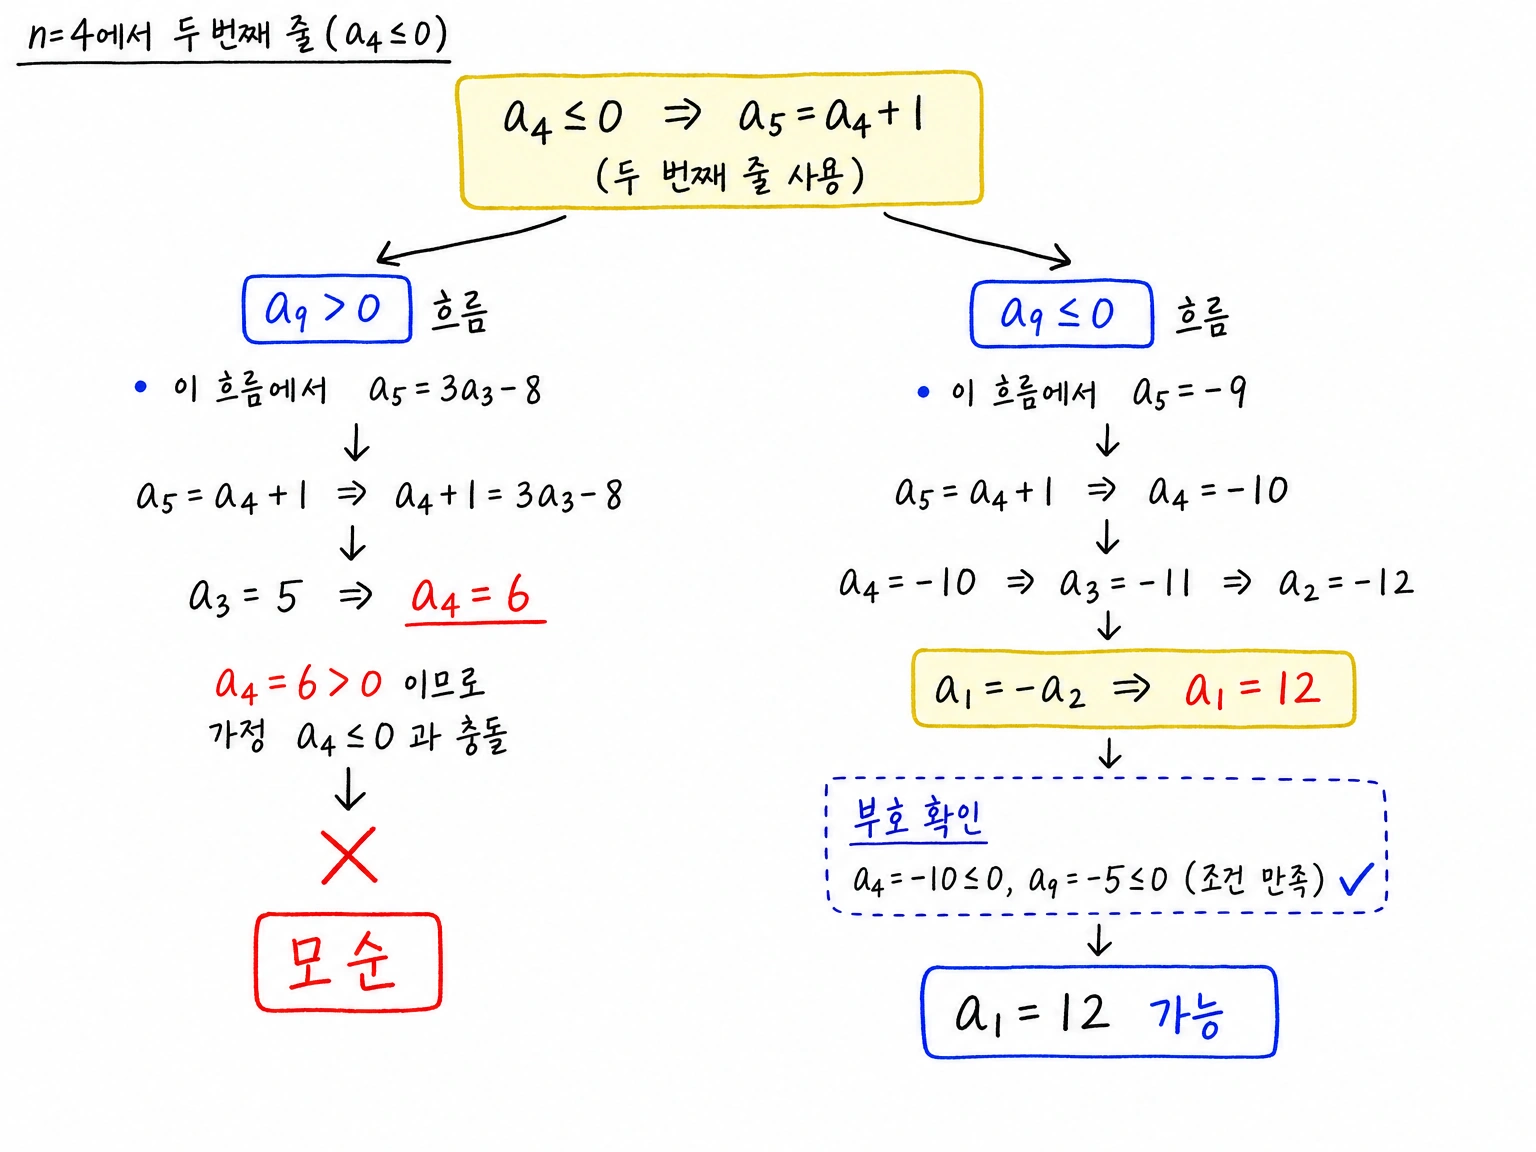 n=4에서 두 번째 줄 (a₄ ≤ 0)
a₄ ≤ 0 ⇒ a₅ = a₄ + 1
(두 번째 줄 사용)
a₉ > 0 흐름
• 이 흐름에서 a₅ = 3a₃ - 8
↓
a₅ = a₄ + 1 ⇒ a₄ + 1 = 3a₃ - 8
↓
a₃ = 5 ⇒ a₄ = 6
a₄ = 6 > 0 이므로
가정 a₄ ≤ 0 과 충돌
↓
×
모순
a₉ ≤ 0 흐름
• 이 흐름에서 a₅ = -9
↓
a₅ = a₄ + 1 ⇒ a₄ = -10
↓
a₄ = -10 ⇒ a₃ = -11 ⇒ a₂ = -12
↓
a₁ = -a₂ ⇒ a₁ = 12
↓
부호 확인
a₄ = -10 ≤ 0, a₉ = -5 ≤ 0 (조건 만족) ✓
↓
a₁ = 12 가능